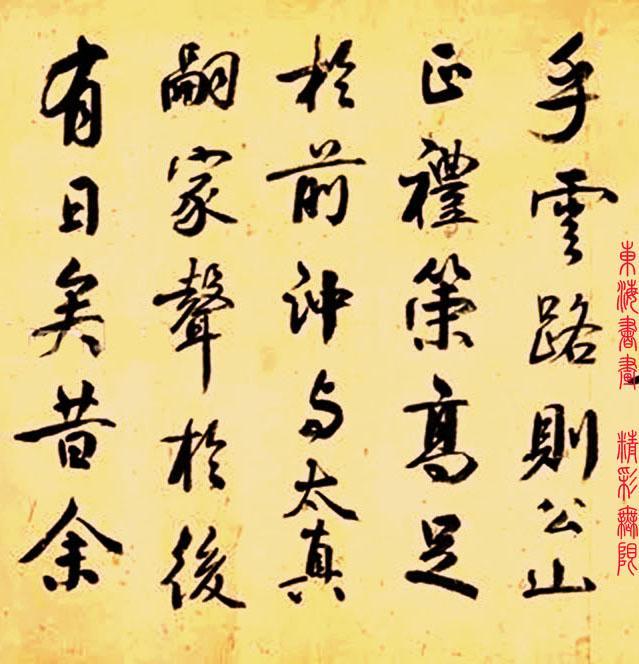 東海書畫 精彩無限
乎雲路則公山
正禮策高足
於前沖与太真
嗣家聲於後
有日矣昔余